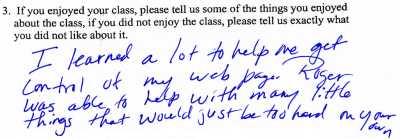 3. If you enjoyed your class, please tell us some of the things you enjoyed
about the class, if you did not enjoy the class, please tell us exactly what
you did not like about it.
I learned a lot to help me get
control of my web page. Roger
was able to help with many little
things that would just be too hard on your
own